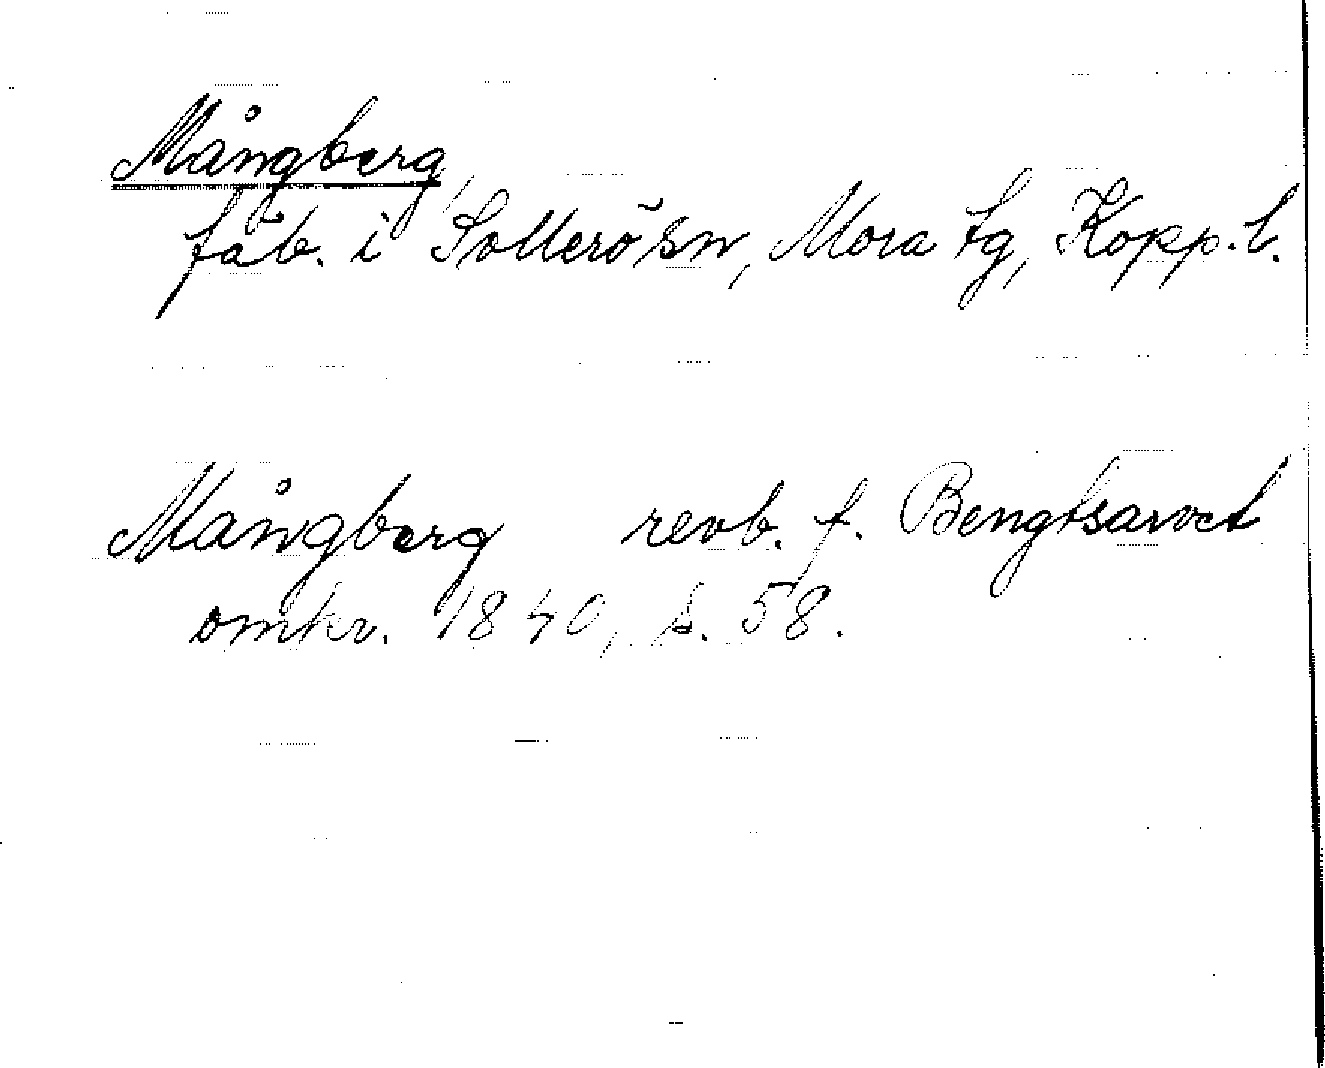 Mångberg,
fäb. i Sollerö sn, Mora tg, Kopp. l.
Mångberg revb. f. Bengtsarvet
omkr. 1840, s. 58.